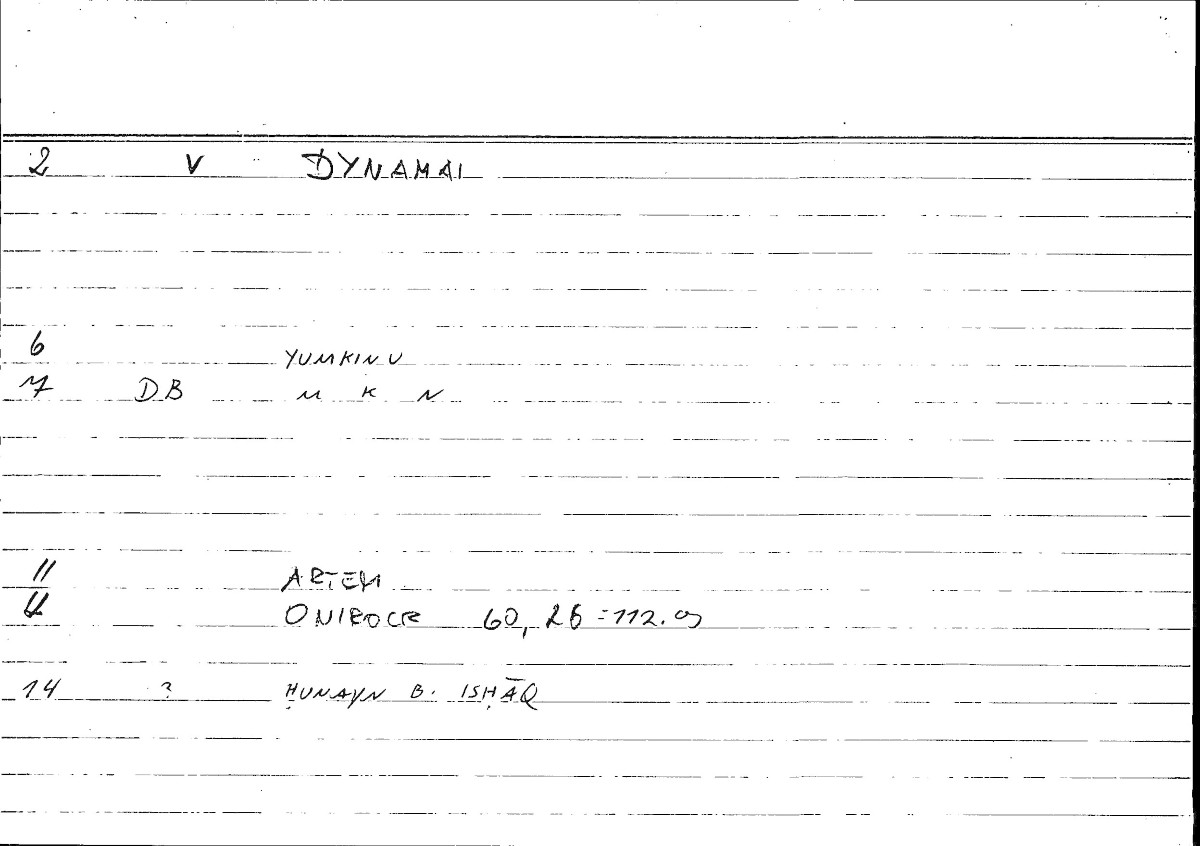 2 V DYNAMAI
6 YUMKINU
7 DB M K N
11 ARTEM
12 ONIROCR 60, 26 = 112.9
14 ? ḤUNAYN B. ISḤĀQ